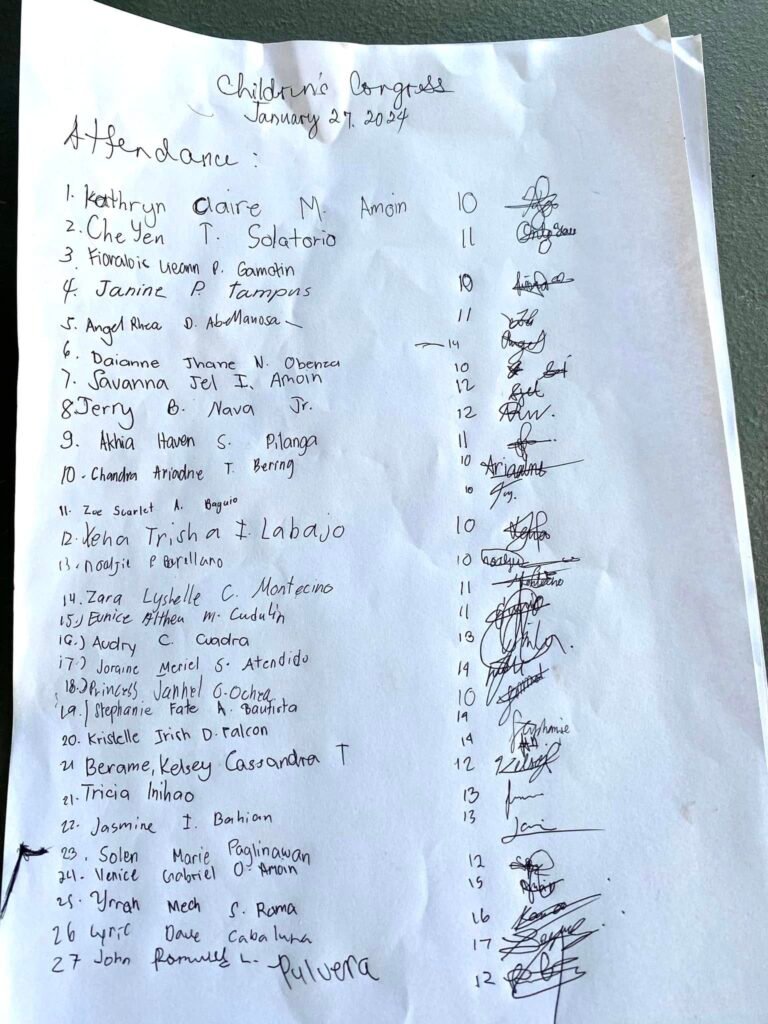 Children's Congress
January 27, 2024
Attendance :
1. Kathryn Claire M. Amoin 10
2. Che Yen T. Solatorio 11
3. P. Gamotin 10
4. Janine P. Tampus 11
5. Angel Rhea D. AbeManosa 14
6. Daianne Jhane N. Obenza 10
7. Savanna Jel I. Amoin 12
8. Jerry B. Nava Jr. 12
9. Akhia Haven S. Pilanga 11
10. Chandra Ariadne T. Bering 10 Ariadne
11. Zoe Scarlet A. Baguio 10
12. Xena Trisha I. Labajo 10
13. P Barillano 10
14. Zara Lyshelle C. Montecino 11
15.) Eunice Althea M. Cudulin 11
16.) Audry C. Cuadra 13
17.) Joraine Meriel S. Atendido 14
18.) Princess Janhel O. Ochea 10
19.) Stephanie Fate A. Bautista 14 Stephanie
20. Kristelle Irish D. Falcon 14
21 Berame, Kelsey Cassandra T 12
21. Tricia Inihao 13
22. Jasmine I. Bahian 13
23. Solen Marie Paglinawan 12
24. Venice Gabriel O. Amoin 15
25. Yrrah Mech S. Roma 16
26 Lyric Dave Cabaluna 17
27 John Romulus L. Pulvera 12